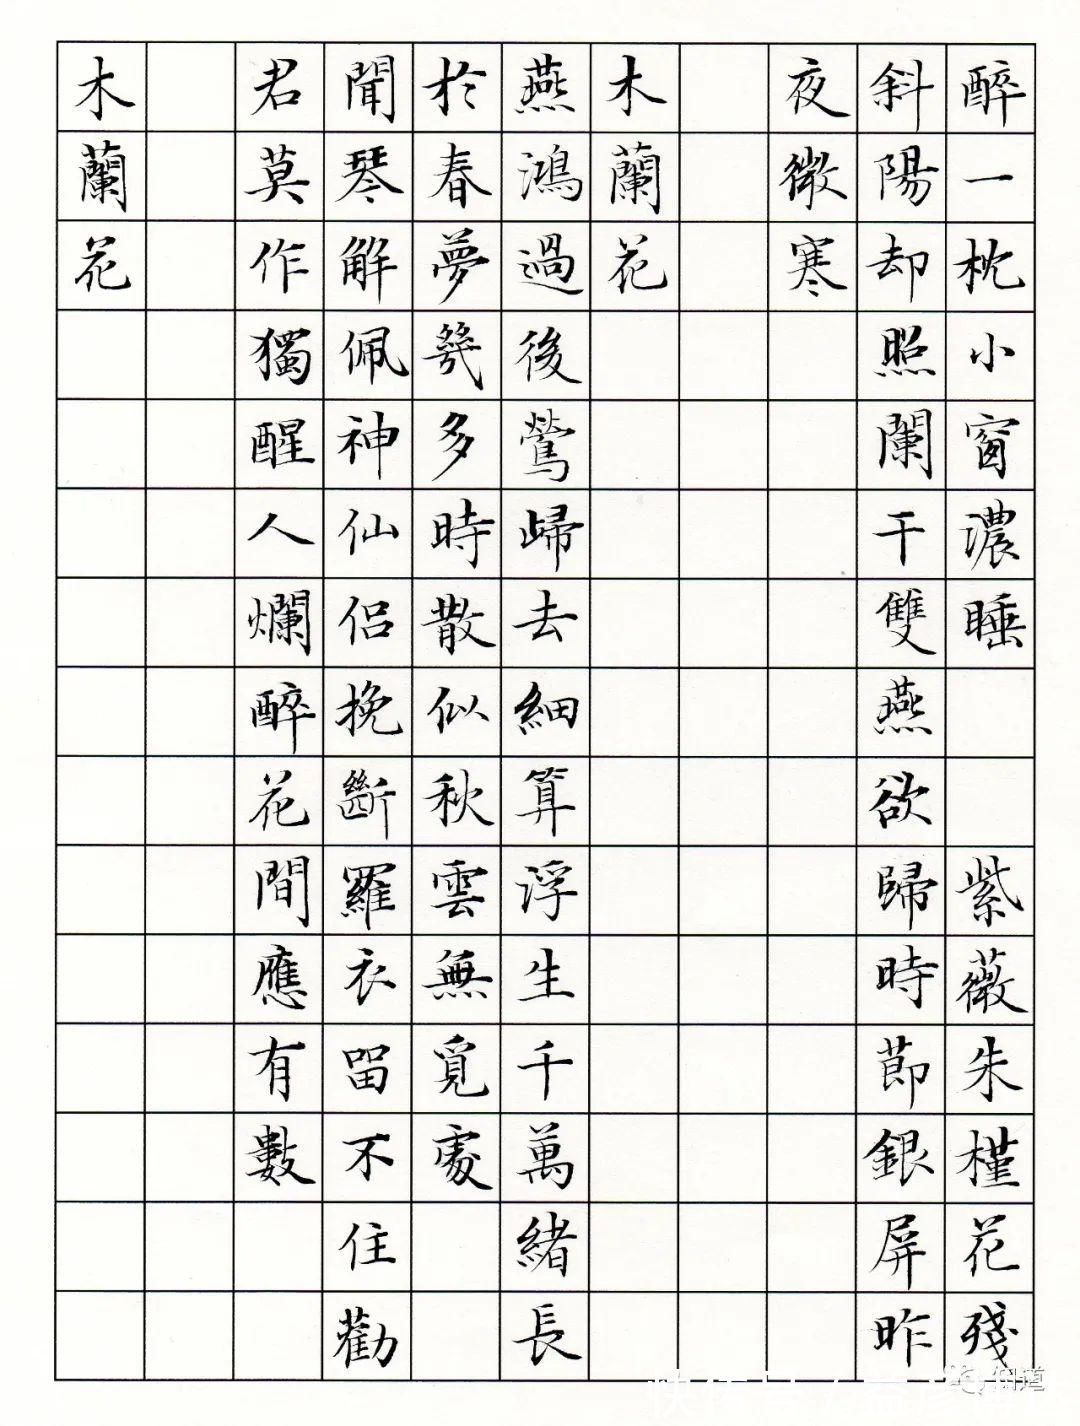 醉一枕小窗濃睡 紫薇朱槿花殘
斜陽却照闌干雙燕欲歸時節銀屏昨
夜微寒
木蘭花
燕鴻過後鶯歸去細算浮生千萬緒長
於春夢幾多時散似秋雲無覓處
聞琴解佩神仙侶挽斷羅衣留不住勸
君莫作獨醒人爛醉花間應有數
木蘭花